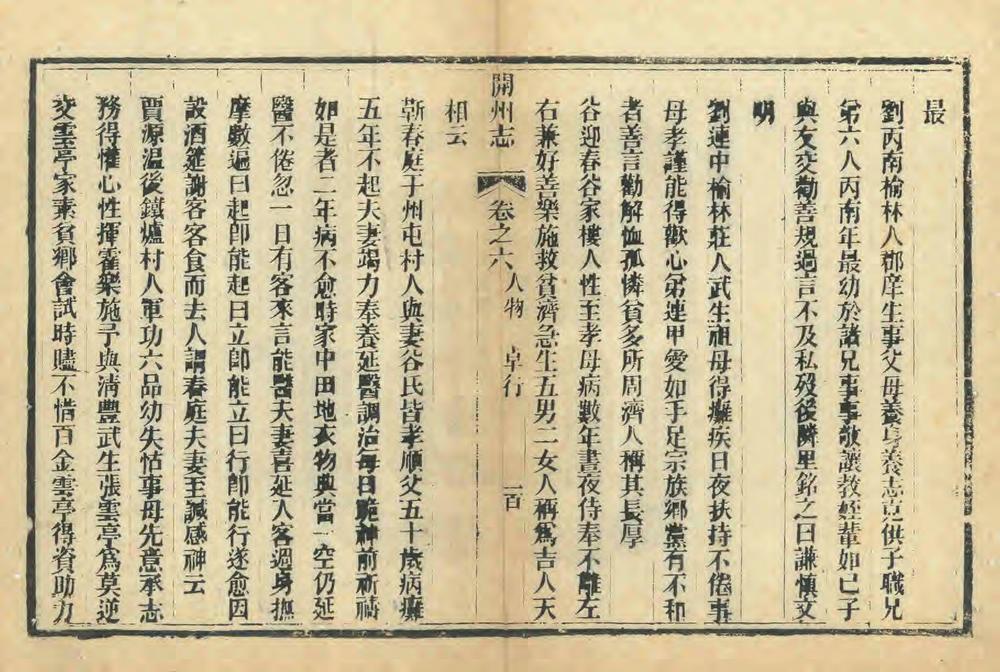 最
劉丙南榆林人郡庠生事父母養身養志克供子職兄
弟六人丙南年最幼於諸兄事事敬讓教姪輩如己子
與友交勸善規過言不及私歿後隣里銘之曰謙慎文
明
劉連中榆林莊人武生祖母得癱疾日夜扶持不倦事
母孝謹能得歡心弟連甲愛如手足宗族鄉黨有不和
者善言勸解恤孤憐貧多所周濟人稱其長厚
谷迎春谷家樓人性至孝母病數年晝夜侍奉不離左
右兼好善樂施救貧濟急生五男二女人稱爲吉人天
相云
開州志 卷之六 人物 卓行 一百
靳春庭于州屯村人與妻谷氏皆孝順父五十歲病癱
五年不起夫妻竭力奉養延醫調治每日跪神前祈禱
如是者二年病不愈時家中田地衣物典當一空仍延
醫不倦忽一日有客來言能醫夫妻喜延入客週身撫
摩數遍曰起卽能起曰立卽能立曰行卽能行遂愈因
設酒筵謝客客食而去人謂春庭夫妻至誠感神云
賈源温後鐵爐村人軍功六品幼失怙事母先意承志
務得懽心性揮霍樂施予與清豐武生張雲亭爲莫逆
交雲亭家素貧鄉會試時贐不惜百金雲亭得資助力